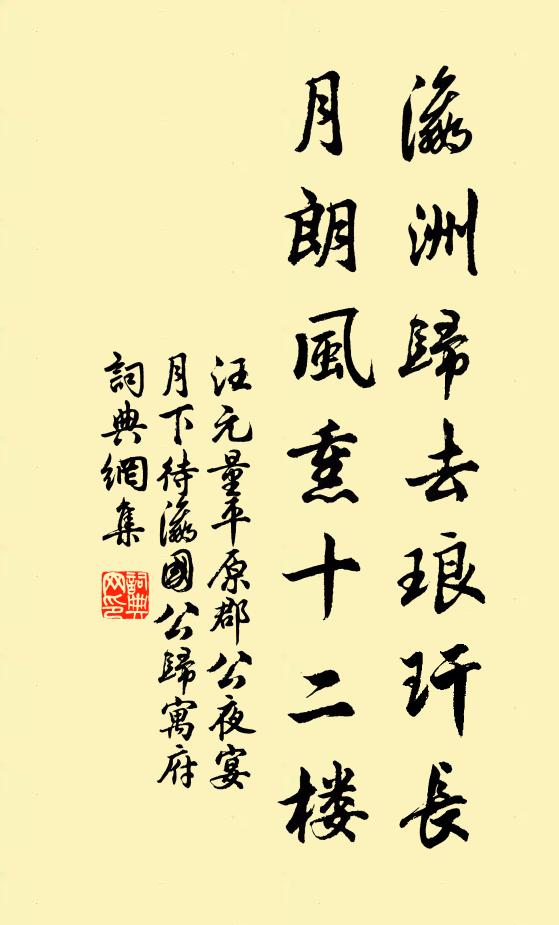 瀛洲歸去琅玕長
月朗風熏十二楼
汪元量平原郡公夜宴
月下待瀛國公歸寓府
詞典網集
詞典網印